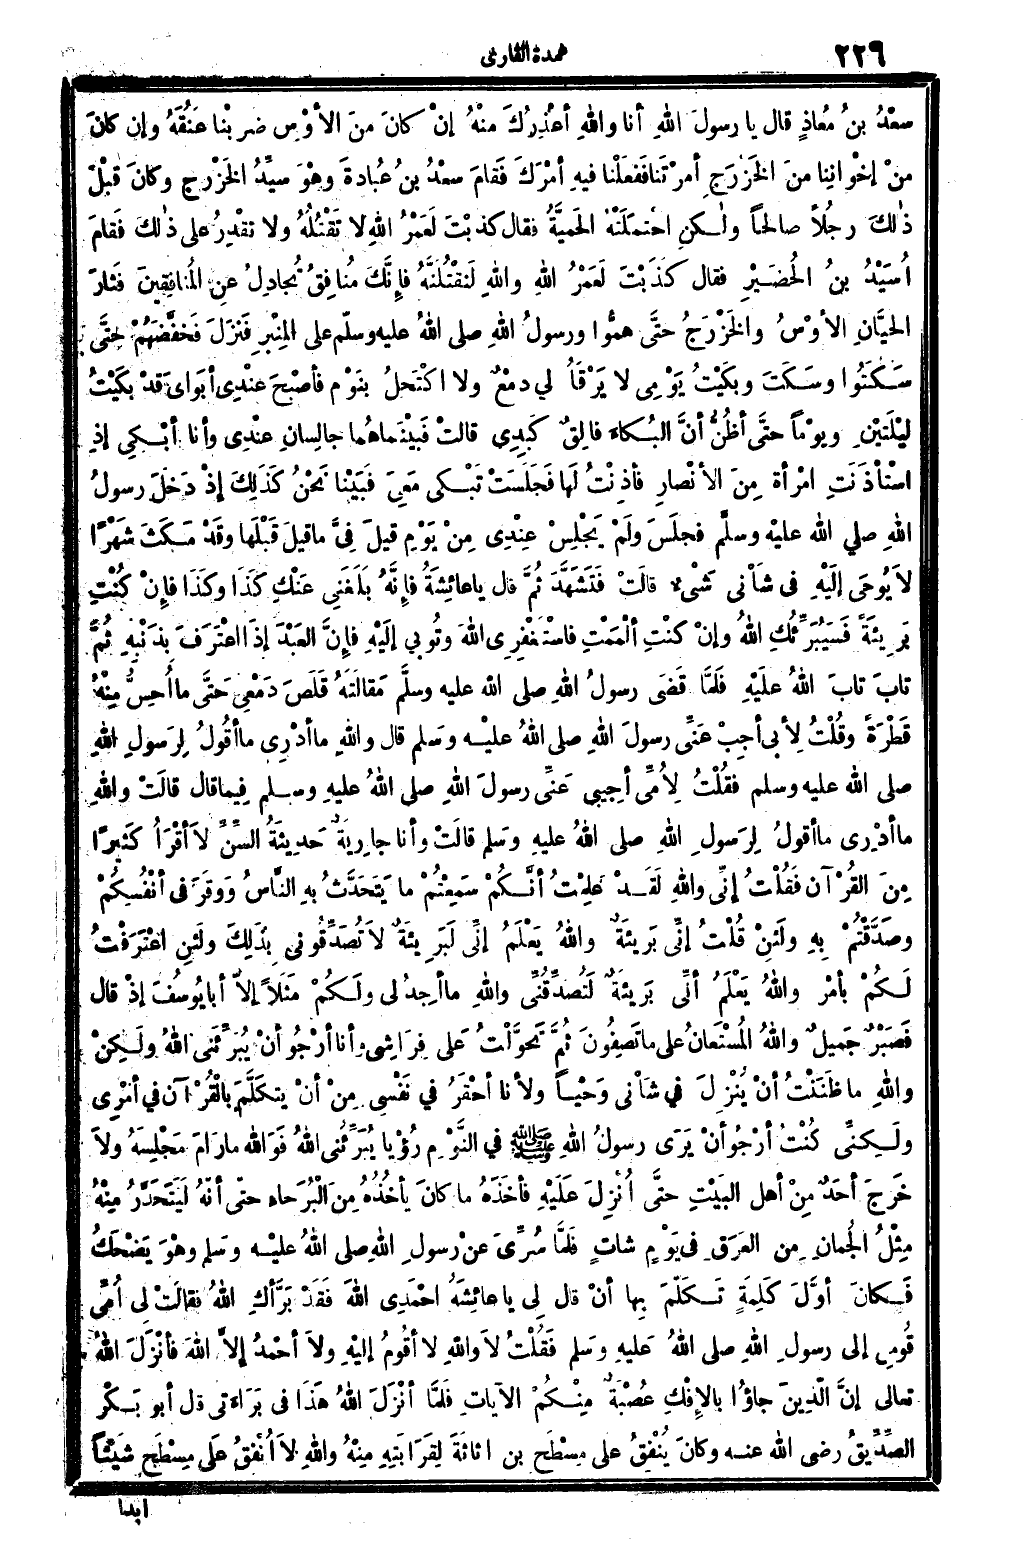 ٢٢٩
عمدة القارئ
سعْدُ بنُ مُعاذٍ قال يا رسولَ اللهِ أنا واللهِ أعْذِرُكَ منْهُ إنْ كانَ منَ الأوْسِ ضربْنا عنُقَهُ وإن كانَ
منْ إخْوانِنا منَ الخَزْرَجِ أمرْتَنا ففعَلْنا فيهِ أمْرَكَ فَقامَ سعْدُ بنُ عُبادةَ وهْوَ سيِّدُ الخَزْرجِ وكانَ قبْلَ
ذٰلكَ رجُلاً صالحَاً ولٰكنِ احْتملَتْهُ الحَميَّةُ فقال كذبْتَ لَعَمْرُ اللهِ لا تَقْتُلُهُ ولا تقْدِرُ على ذٰلكَ فَقامَ
اُسَيْدُ بنُ الحُضَيْرِ فقال كَذَبْتَ لَعَمْرُ اللهِ واللهِ لَنقْتُلَنَّهُ فإنَّكَ مُنافِقٌ تُجادِلُ عنِ المُنافِقِينَ فثارَ
الحيَّانِ الأوْسُ والخَزْرَجُ حتَّى همُّوا ورسولُ اللهِ صلى اللهُ عليهِ وسلّم على المِنْبرِ فَنَزَلَ فَخفَّضَهُمْ حتَّى
سَكَتُوا وسَكَتَ وبكَيْتُ يَوْمِى لا يَرْقَأُ لي دمْعٌ ولا اكْتَحلُ بنَوْمٍ فأصْبحَ عنْدِى أبَوَاىَ قدْ بكَيْتُ
ليْلَتَيْنِ ويوْماً حتَّى أظُنُّ أنَّ البُكاءَ فالِقٌ كَبِدِي قالتْ فَبيْنَماهُما جالِسانِ عنْدِى وأنا أبْكِي إذِ
اسْتأْذَنَتِ امْرأةٌ مِنَ الأنْصارِ فأذِنْتُ لَها فَجلَسَتْ تَبْكى مَعِىَ فَبَيْنا نَحْنُ كَذٰلِكَ إذْ دَخَلَ رسولُ
اللهِ صلي الله عليْه وسلَّم فجلَسَ ولَمْ يَجْلِسْ عِنْدِى مِنْ يَوْمِ قيلَ فِىَّ ماقيلَ قَبْلَها وقَدْ مَكَثَ شَهْرًا
لا يُوحَى إلَيْهِ فى شأنى شىْءٌ قالَتْ فَتَشَهَّدَ ثُمَّ قال ياعائِشَةُ فإنَّهُ بَلَغَنِى عَنْكِ كَذَا وكَذَا فإنْ كُنْتِ
بَرِيئَةً فَسيُبَرِّئُكِ اللهُ وإنْ كنْتِ ألْمَمْتِ فاسْتَغْفِرِى اللهَ وتُوبي إلَيْهِ فإنَّ العَبْدَ إذَا اعْتَرَفَ بِذَنْبِهِ ثُمَّ
تابَ تابَ اللهُ علَيْهِ فلَمَّا قَضَى رسولُ اللهِ صلى الله عليه وسلَّم مَقالَتَهُ قلَصَ دَمْعِى حَتَّى ما أُحِسُّ مِنْهُ
قَطْرَةً وقُلْتُ لِأبى أجِبْ عَنِّى رسولَ اللهِ صلى اللهُ عليْهِ وَسَلم قال واللهِ ما أدْرِى ما أقُولُ لِرَسولِ اللهِ
صلى الله عليه وسلم فقُلْتُ لِأُمِّى أجِيبي عَنِّى رسولَ اللهِ صلى اللهُ عليهِ وسلم فِيما قال قالَتْ واللهِ
ما أدْرِى ما أقولُ لِرَسولِ اللهِ صلى اللهُ عليهِ وَسَلم قالَتْ وأنا جارِيَةٌ حَدِيثَةُ السِّنِّ لا أقْرَأُ كَثيرًا
مِنَ القُرْآنِ فَقُلْتُ إنِّى واللهِ لَقَدْ عَلِمْتُ أنَّكُمْ سَمِعْتُمْ ما يَتَحَدَّثُ بِهِ النَّاسُ وَوَقَرَ فى أنْفُسِكُمْ
وصَدَّقْتُمْ بِهِ ولَئِنْ قُلْتُ إنِّى بَرِيئَةٌ واللهُ يَعْلَمُ إنِّى لَبَرِيئَةٌ لا تُصَدِّقُونى بِذٰلِكَ ولَئِنِ اعْتَرَفْتُ
لَكُمْ بأمْرٍ واللهُ يَعْلَمُ أنِّى بَرِيئَةٌ لَتُصدِّقُنِّى واللهِ ما أجِدُ لى ولَكُمْ مَثَلاً إلاَّ أبايُوسُفَ إذْ قال
فَصَبْرٌ جَمِيلٌ واللهُ المُسْتَعانُ على ما تَصِفُونَ ثُمَّ تَحَوَّلْتُ عَلى فِرَاشِى وأنا أرْجُو أنْ يُبَرِّئَنى اللهُ ولَكِنْ
واللهِ ما ظَنَنْتُ أنْ يُنْزِلَ في شَأنى وَحْياً ولأنا أحْقَرُ في نَفْسِى مِنْ أنْ يتكَلَّمَ بالْقُرْآنِ في أمْرِى
ولَكِنِّى كُنْتُ أرْجُو أنْ يَرَى رسولُ اللهِ ﷺ في النَّوْمِ رُؤْيا يُبَرِّئُنى اللهُ فَوَ الله مارَامَ مَجْلِسهُ ولاَ
خَرَجَ أحَدٌ مِنْ أهلِ البَيْتِ حتَّى أُنْزِلَ عَلَيْهِ فأخَذَهُ ما كانَ يأْخُذُهُ مِنَ الْبُرَحاءِ حتّى أنَّهُ لَيَتَحَدَّرُ مِنْهُ
مِثْلُ الجُمانِ مِنَ العَرَقِ فى يَوْمٍ شاتٍ فَلَمَّا سُرِّىَ عنْ رسولِ اللهِ صلى اللهُ عليْهِ وَسَلم وهْوَ يَضْحَكُ
فَكانَ أوَّلَ كَلِمَةٍ تَكَلّمَ بِها أنْ قال لِى ياعائِشَةُ احْمَدِى اللهَ فَقَدْ بَرَّأَكِ اللهُ فقالَتْ لِى أُمِّى
قُومِى إلى رسولِ اللهِ صلى اللهُ عَليهِ وَسَلم فَقُلْتُ لا واللهِ لا أقُومُ إلَيْهِ ولاَ أحْمَدُ إلاَّ اللهَ فأنْزَلَ اللهُ
تعالى إنَّ الّذِينَ جاؤُا بالإِفْكِ عُصْبَةٌ مِنْكُمْ الآياتِ فلَمَّا أنْزَلَ اللهُ هَذَا فى بَرَاءَتى قال أبو بَكْرٍ
الصِّدِّيقُ رضى الله عنه وكانَ يُنْفِقُ على مِسْطَحِ بنِ اثاثَةَ لِقَرَابَتِهِ مِنْهُ واللهِ لاَ أُنْفِقُ عَلَى مِسْطَحٍ شَيْئاً
ابدا